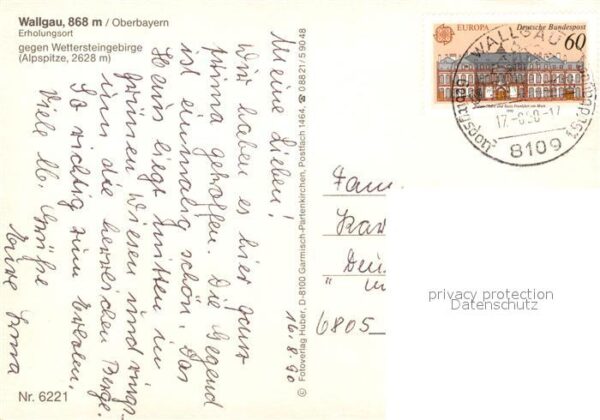 Wallgau, 868 m / Oberbayern
Erholungsort
gegen Wettersteingebirge
(Alpspitze, 2628 m)
Meine Lieben!
Wir haben es hier ganz
prima getroffen. Die Gegend
ist einmalig schön. Das
Haus liegt mitten in
grünen Wiesen und rings-
um die herrlichen Berge.
So richtig zum Erholen.
Viele lb. Grüße
Eure Irma
Nr. 6221
© Fotoverlag Huber, D-8100 Garmisch-Partenkirchen, Postfach 1464, ☎ 08821/59048
16.8.90
EUROPA Deutsche Bundespost
60
WALLGAU
17.-8.90-17
8109
Fam
6805
privacy protection
Datenschutz